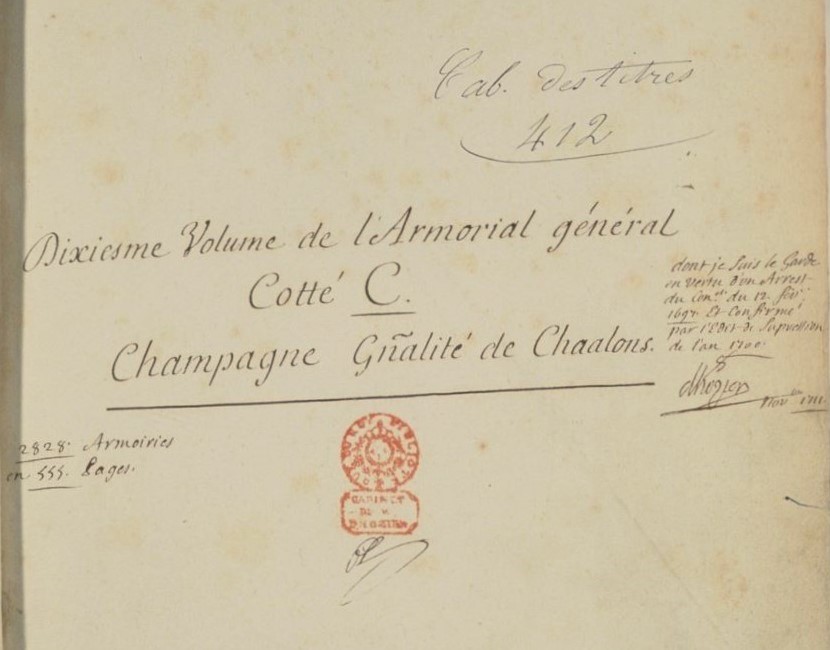 Cab. des titres
412
Dixiesme Volume de l'Armorial général
Cotté C.
Champagne Gñalité de Chaalons.
dont je suis le Garde
en vertu d'un Arrest
du Con.el du 12. fev.r
1697. Et Confirmé
par l'Edit de Supression
de l'an 1700.
d'Hozier
2828. Armoiries
en 555. Pages.
CABINET